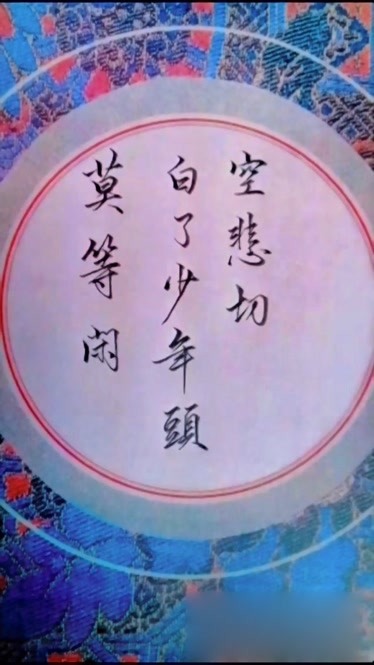 莫等闲
白了少年頭
空悲切